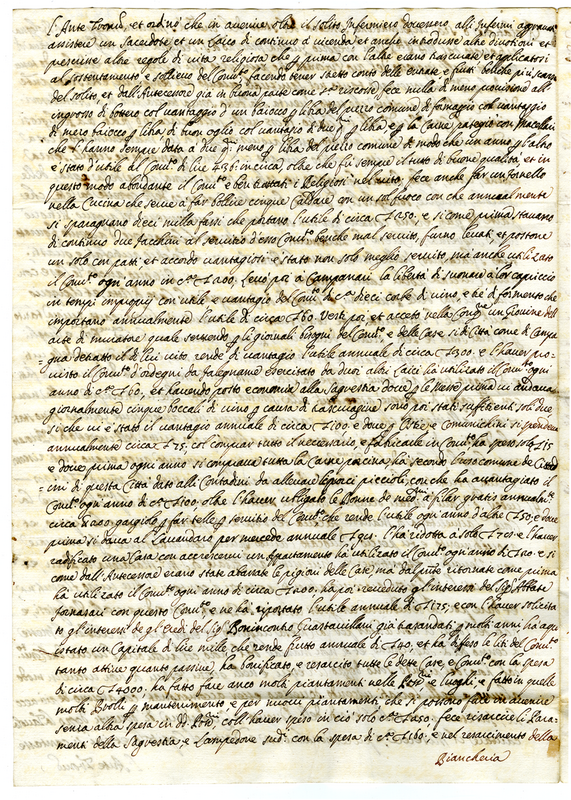 et ordinò che in avenire oltre il solito Infermiero dovessero alli Infermi
assistere un Sacerdote et un Laico di continuo a vicenda et anche introdusse altre divotioni et
altre regole di vita religiosa che prima con l'altre erano trascurate
al sostentamento e sollievo del Conv.to facendo tener stretto conto delle entrate e frutti benche più scarsi
del solito et dall'Antecessore già in buona parte come riscosse fece nulla di meno provisioni all'
ingrosso di botero col vantaggio d'un baiocco libra del prezzo comune di formaggio con vantaggio
di mezo baiocco libra di buon oglio col vantagio di due libra e la Carne pategio con Macellari
che hanno sempre data a due meno libra del prezzo comune di modo che un anno l'altro
è stato d'utile al Conv.to di lire 436 in circa, oltre che fu sempre il tutto di buona qualità, et in
questo modo abondante il Conv.to e ben trattati i Religiosi nel vitto, fece anche far un fornello
nella Cucina che serve a far bollire cinque Caldare con un sol fuoco con che annualmente
si sparagnano dieci milla fassi che portano l'utile di circa 250, e si come prima stavano
di continuo due facchini al servitio d'esso Conv.to benche mal servito, furno levati, et postone
un solo con patti et accordo vantagioso è stato non solo meglio servito, ma anche utilizato
il Conv.to ogni anno in 200, levò poi a Campanari la libertà di suonare a lor capriccio
in tempi improprij con utile e vantagio del Conv.to di dieci corbe di vino, e tre di formento che
importano annualmente l'utile di circa 60. Vestì poi, et accettò nella un Giovine dell'
arte di muratore quale servendo li giornali bisogni del Conv.to e delle Case sì di Città come di Campa
gna detratto il di lui vitto rende di vantagio l'utile annuale di circa 300. e l'haver pro
visto il Conv.to d'ordegni da falegname esercitato da duoi altri laici hà utilizato il Conv.to ogni
anno di 60, et havendo posto economia alla Sagrestia dove le Messe prima vi andavano
giornalmente cinque boccali di vino causa di sono poi stati sufficienti soli due
si che vi è stato il vantagio annuale di circa 100. e dove Ostie e Comunichini si spendeva
annualmente circa 75. col comprar tutto il necessario, e fabricarle in Conv.to hà speso solo 15
e dove prima ogni anno si comprava tutta la Carne porcina hà secondo l'uso comune de Citta
dini di questa Città dato alli Contadini da allevare porci piccioli, con che hà avantagiato il
Conv.to ogni anno di 100. oltre l'haver utilizato le Donne de med.mi a filar gratis annualm.te
circa 200. gargiolo far telle servitio del Conv.to che rende l'utile ogni anno d'altre 50, e dove
prima si dava al Lavandaro per mercede annuale 91. l'hà ridotta a sole 70. e l'haver
redificato una Casa con accrescervi un apartamento hà utilizato il Conv.to ogni anno di 20. e si
come dall'Antecessore erano state abassate le pigioni delle Case ma dal ritornate come prima
hà utilizato il Conv.to ogni anno di circa 200. hà poi riveduto gl'interessi del Sig. Abbate
Fornasari con questo Conv.to e ne hà riportato l'utile annuale di 175, e con l'haver solicita
to gl'interessi de gl'Eredi del Sig. Bonincontro Guastavillani già trasandati molti anni hà aqui
stato un Capitale di lire mille che rende frutto annuale di 40, et hà difeso le liti del Conv.to
tanto attive quanto passive, hà bonificato, e resarcito tutte le dette Case, e Conv.to con la spesa
di circa 4000. hà fatto fare anco molti piantamenti nelle e luoghi, e fatto in quelle
molti mantenimento, e per nuovi piantamenti, che si possono fare in avenire
senza altra spesa in coll'haver speso in ciò solo 250. fece risarcire li Para
menti della Sagrestia e Lampedone con la spesa di 160, e nel resarcimento della
Biancheria